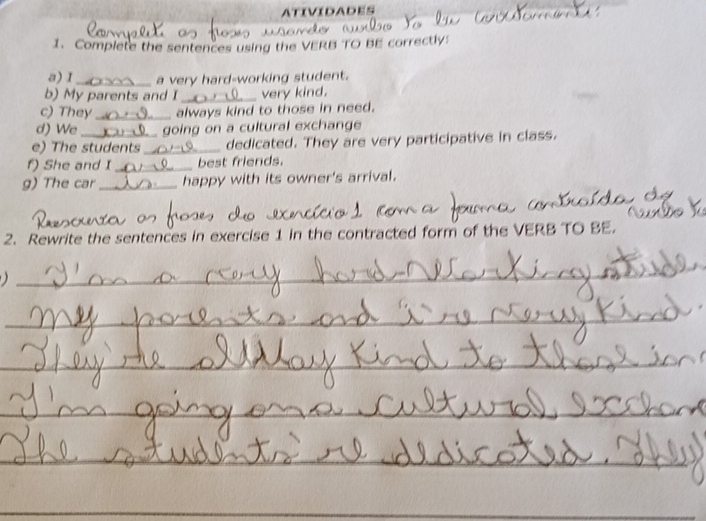 ATIVIDADES
Complete as frases usando verbo to be corretamente:
1. Complete the sentences using the VERB TO BE correctly:
a) I am a very hard-working student.
b) My parents and I are very kind.
c) They are always kind to those in need.
d) We are going on a cultural exchange
e) The students are dedicated. They are very participative in class.
f) She and I are best friends.
g) The car is happy with its owner's arrival.
Reescreva as frases do exercício 1 com a forma contraída do verbo to
2. Rewrite the sentences in exercise 1 in the contracted form of the VERB TO BE.
I'm a very hard-working stude
My parents and i're very kind.
They're allway kind to those in
I'm going on a cultural exchan
The students're dedicated. They